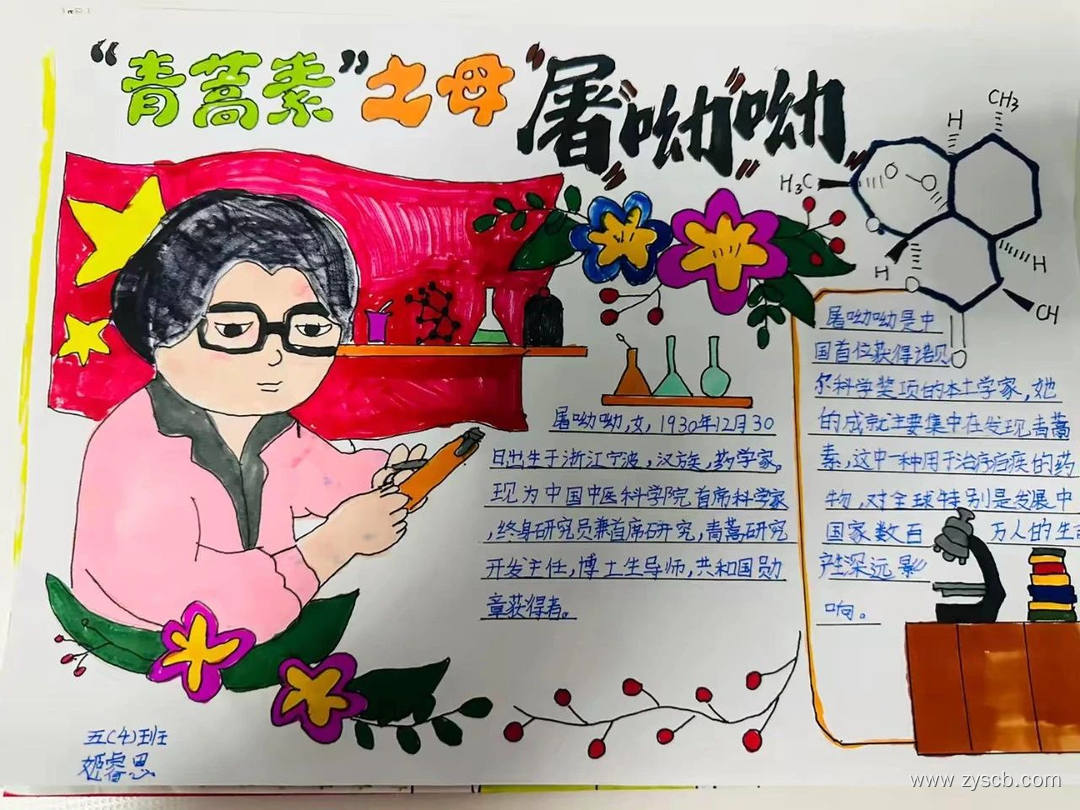 “青蒿素”之母 屠呦呦
CH₃
H
H₃C
O
O
O
H
H
O
CH
O
屠呦呦,女,1930年12月30
日出生于浙江宁波,汉族,药学家,
现为中国中医科学院首席科学家
,终身研究员兼首席研究,青蒿研究
开发主任,博士生导师,共和国勋
章获得者。
屠呦呦是中
国首位获得诺贝
尔科学奖项的本土学家,她
的成就主要集中在发现青蒿
素,这中一种用于治疗疟疾的药
物,对全球特别是发展中
国家数百万人的生
产生深远影
响。
五(4)班
姬睿思
www.zyscb.com